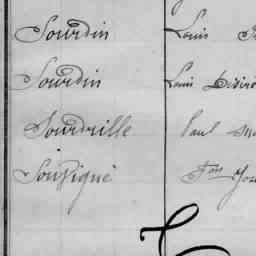 Sourdin Louis
Sourdin Louis Désiré
Sourdrille Paul
Souvigné Fois